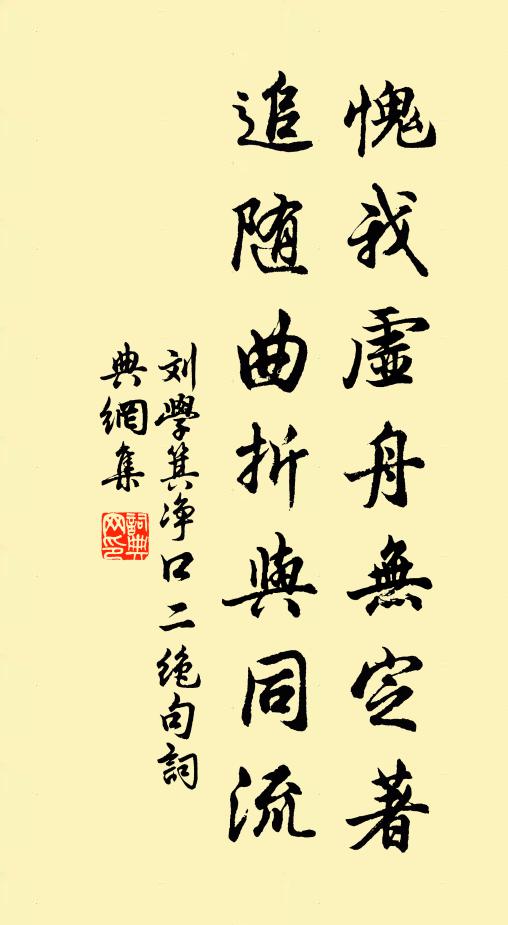 愧我虛舟無定著
追随曲折與同流
刘學箕净口二绝句詞
典網集
詞典
网印